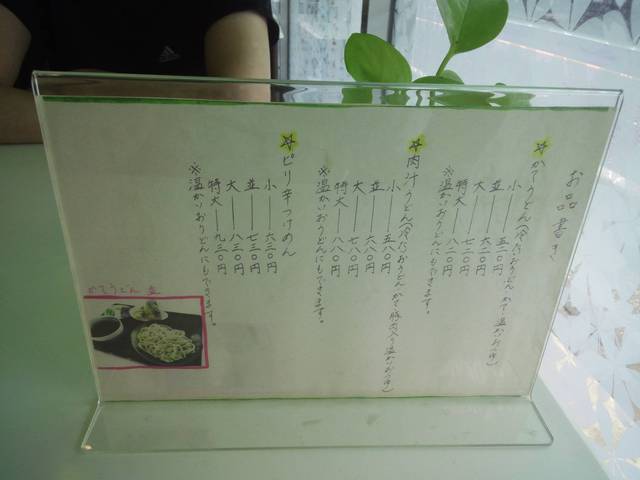 お品書き
☆かてうどん(冷たいおうどん かて 温かいおつゆ)
小 ― 五二〇円
並 ― 六二〇円
大 ― 七二〇円
特大 ― 八二〇円
※温かいおうどんにもできます。
☆肉汁うどん(冷たいおうどん かて 豚肉入り温かいおつゆ)
小 ― 五八〇円
並 ― 六八〇円
大 ― 七八〇円
特大 ― 八八〇円
※温かいおうどんにもできます。
☆ピリ辛つけめん
小 ― 六三〇円
並 ― 七三〇円
大 ― 八三〇円
特大 ― 九三〇円
※温かいおうどんにもできます。
かてうどん 並